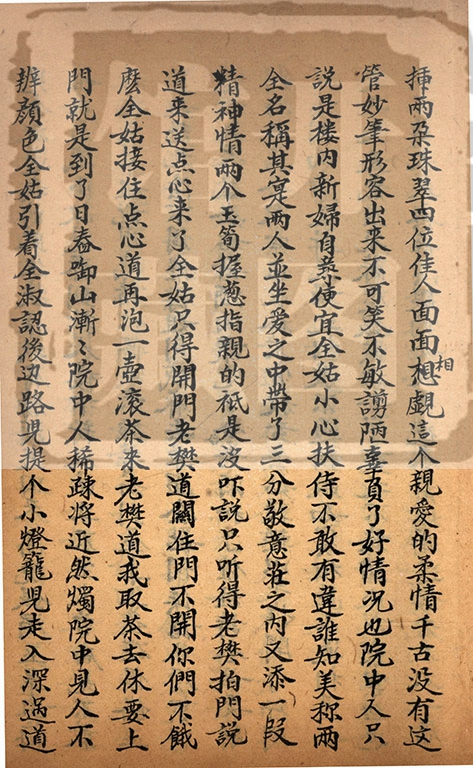 揷兩朶珠翠四位佳人面面想相覷這个親愛的柔情千古没有这
管妙筆形容出来不可笑不敏謭陋辜負了好情况也院中人只
說是楼内新婦自尋便宜全姑小心扶侍不敢有違誰知美称兩
全名稱其寔兩人並坐爱之中帶了三分敬意莊之内又添一段
精神情兩个玉筍握葱指親的祇是没吓説只听得老樊拍門説
道来送点心来了全姑只得開門老樊道關住門不開你們不餓
麽全姑接住点心道再泡一壺滚茶来老樊道我取茶去休要上
門就是到了日春啣山漸〻院中人稀踈将近然燭院中見人不
辨顔色全姑引着全淑認後边路児提个小燈籠児走入深過道